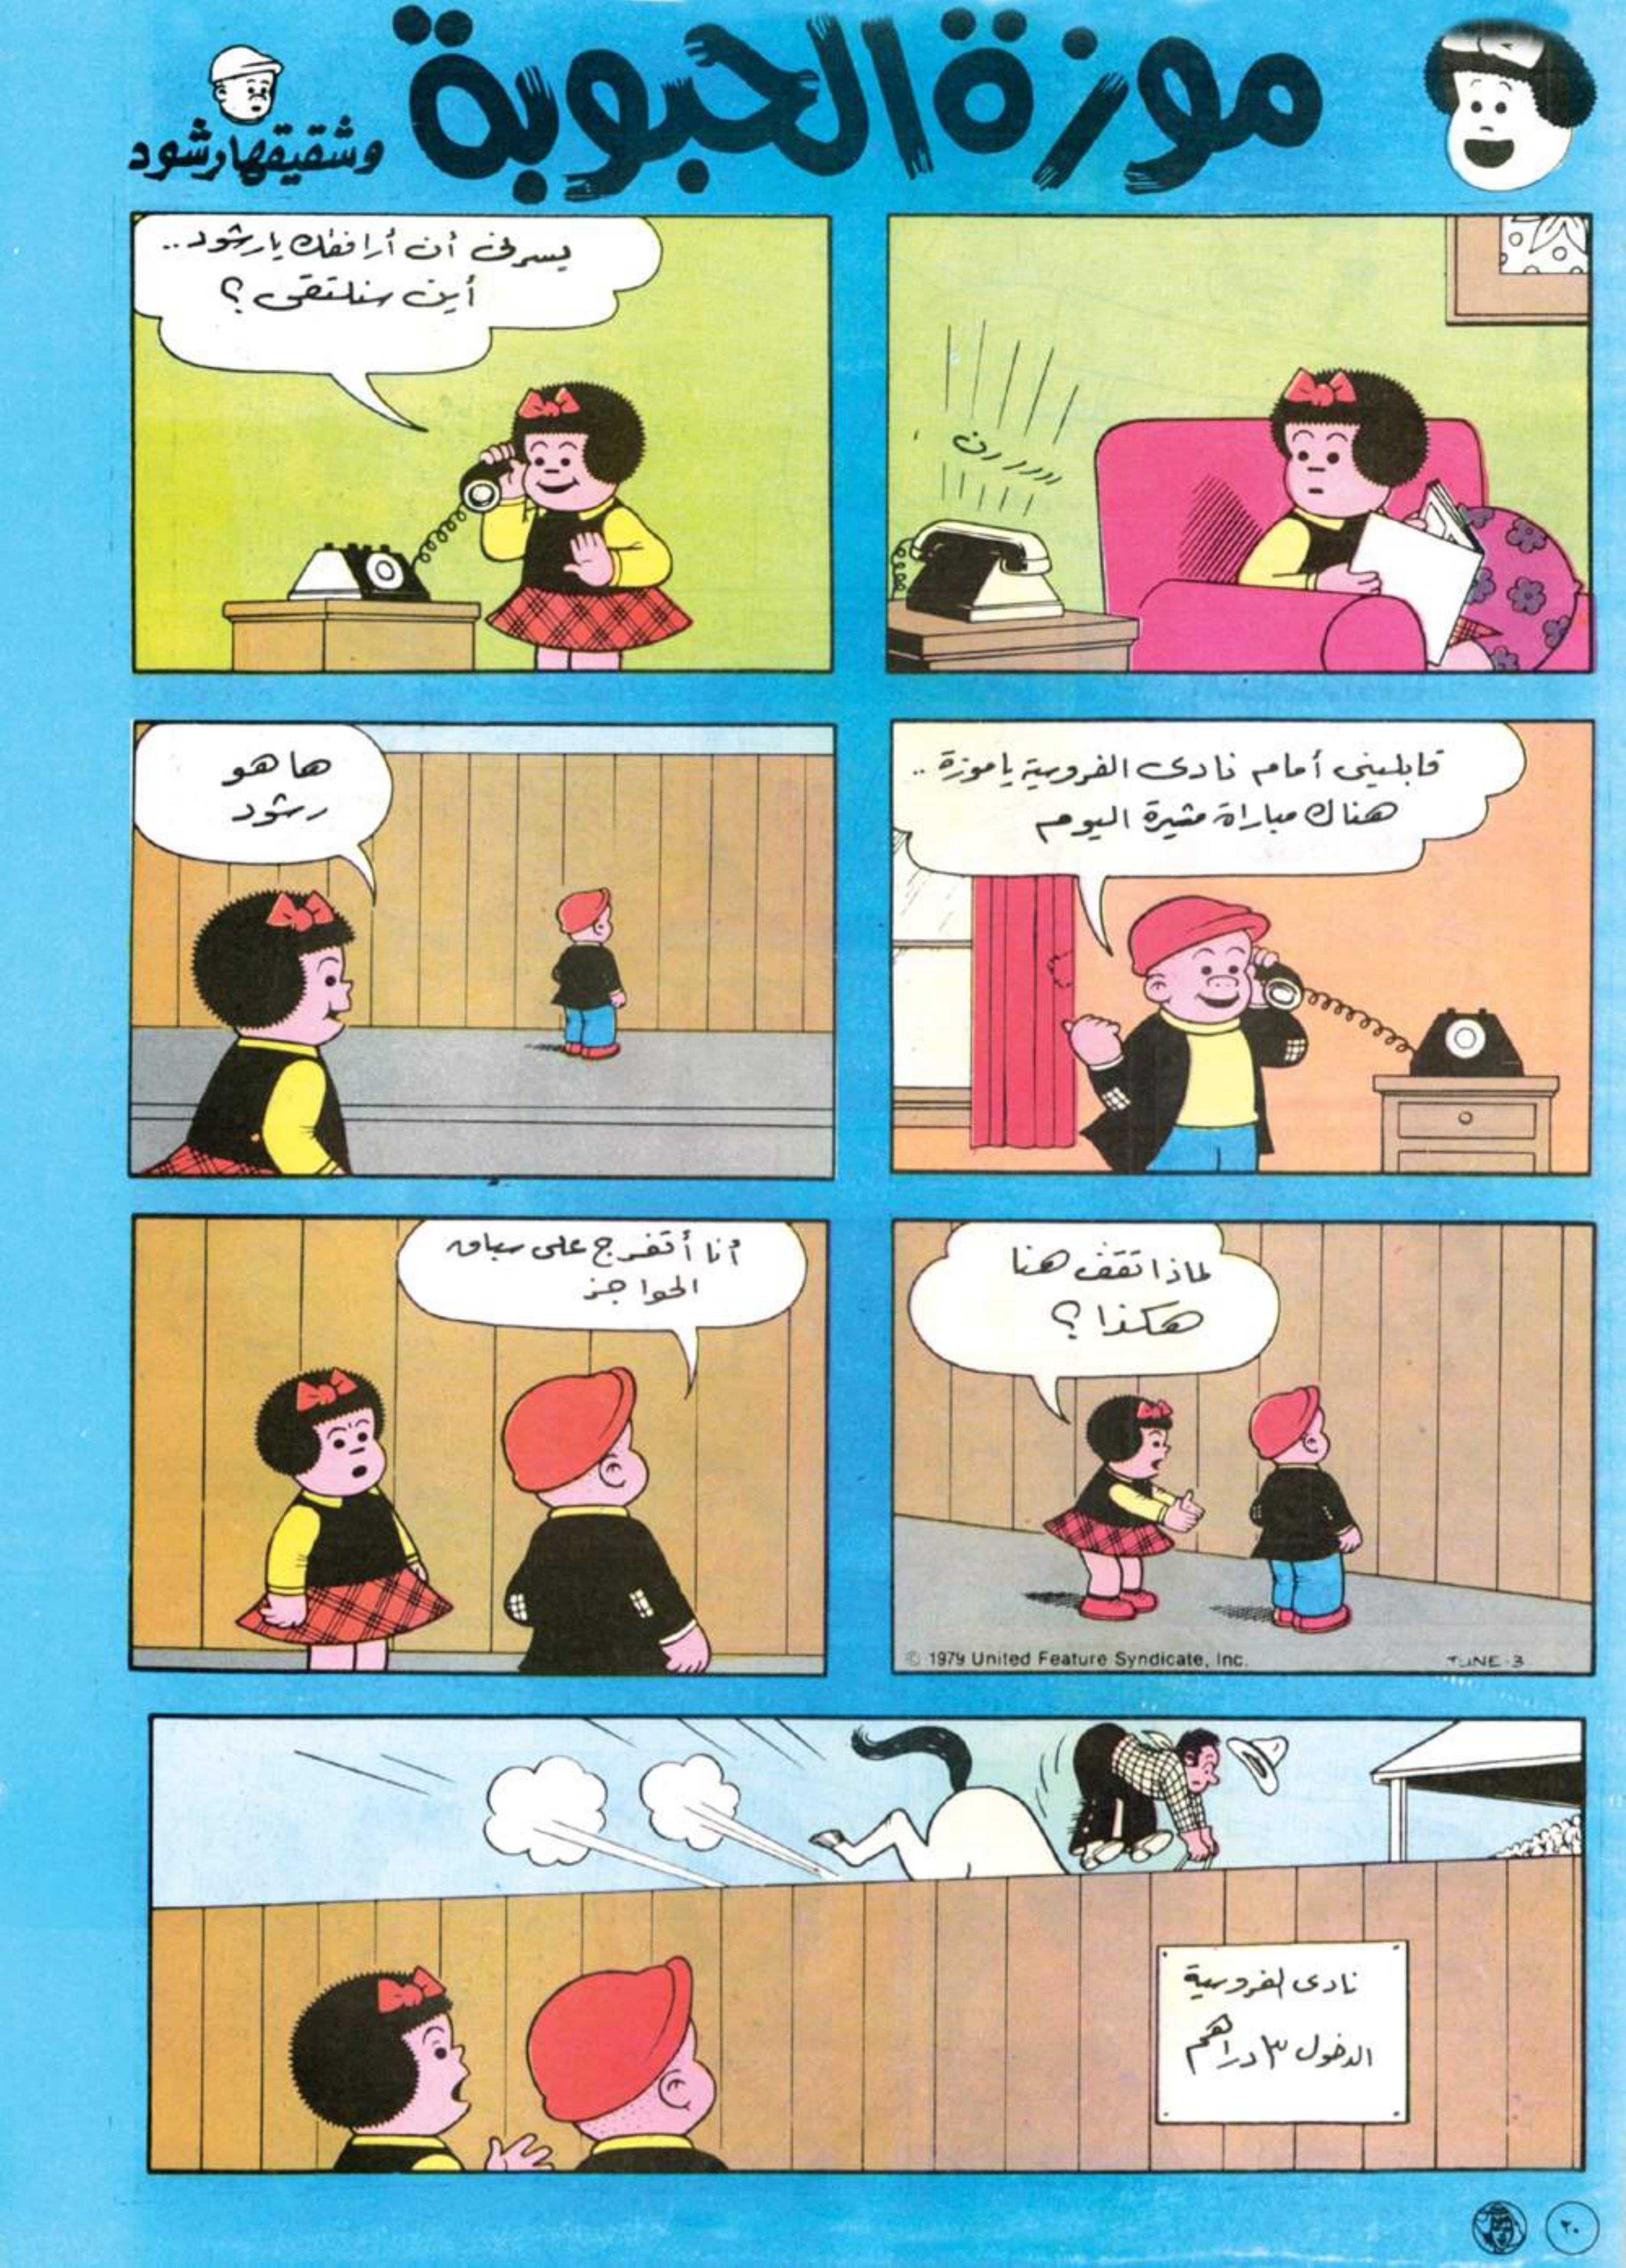 موزة الحبوبة
وشقيقها رشود
ررررررن
يسرني أن أرافقك يا رشود..
أين سنلتقي ؟
قابليني أمام نادى الفروسية يا موزة ..
هناك مباراة مثيرة اليوم
ها هو
رشود
لماذا تقف هنا
هكذا ؟
© 1979 United Feature Syndicate, Inc.
JUNE-3
أنا أتفرج على سباق
الحواجز
نادى الفروسية
الدخول ٣ دراهم
٢٠